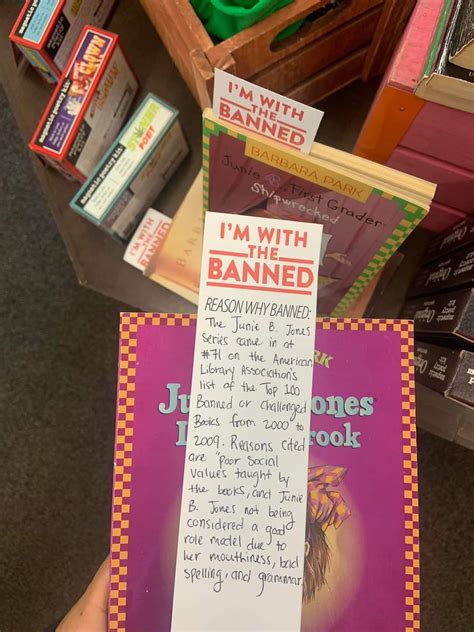 CLOWN
magnetic poetry kit
STONER
POET
magnetic poetry kit
I'M WITH
THE
BANNED
I'M WITH
THE
BANNED
BARBARA PARK
Junie B., First Grader
Shipwrecked
I'M WITH
THE
BANNED
REASON WHY BANNED:
The Junie B. Jones
Series came in at
#71 on the American
Library Association's
list of the Top 100
Banned or Challenged
Books from 2000 to
2009. Reasons cited
are "poor social
values taught by
the books, and Junie
B. Jones not being
considered a good
role model due to
her mouthiness, bad
spelling, and grammar.
ARK
Ju ones
rook